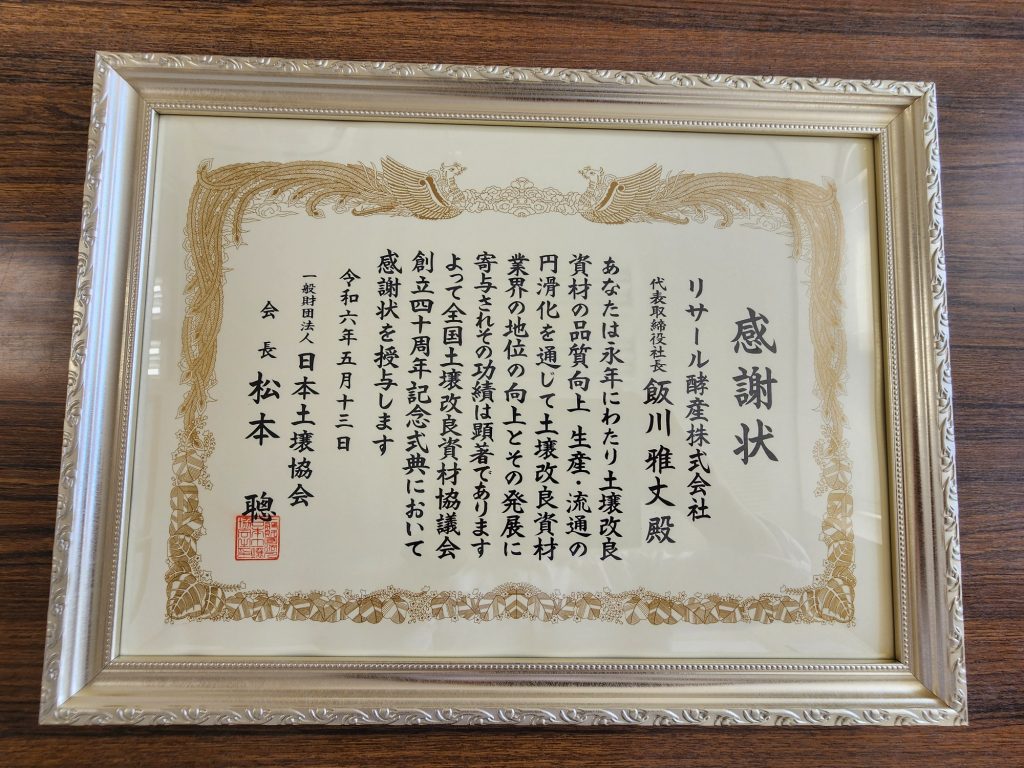 感謝状
リサール酵産株式会社
代表取締役社長 飯川雅丈殿
あなたは永年にわたり土壌改良
資材の品質向上 生産・流通の
円滑化を通じて土壌改良資材
業界の地位の向上とその発展に
寄与されその功績は顕著であります
よって全国土壌改良資材協議会
創立四十周年記念式典において
感謝状を授与します
令和六年五月十三日
一般財団法人 日本土壌協会
会長 松本 聰